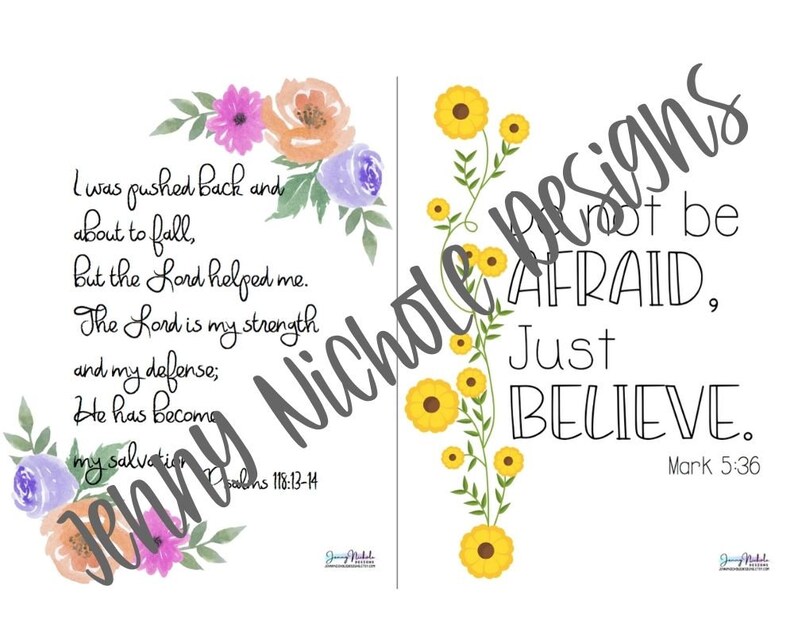 I was pushed back and
about to fall,
but the Lord helped me.
The Lord is my strength
and my defense;
He has become
my salvation
Psalms 118:13-14
Jenny Nichole
DESIGNS
JENNYNICHOLEDESIGNS.ETSY.COM
Do not be
AFRAID,
Just
BELIEVE.
Mark 5:36
Jenny Nichole
DESIGNS
JENNYNICHOLEDESIGNS.ETSY.COM
Jenny Nichole Designs